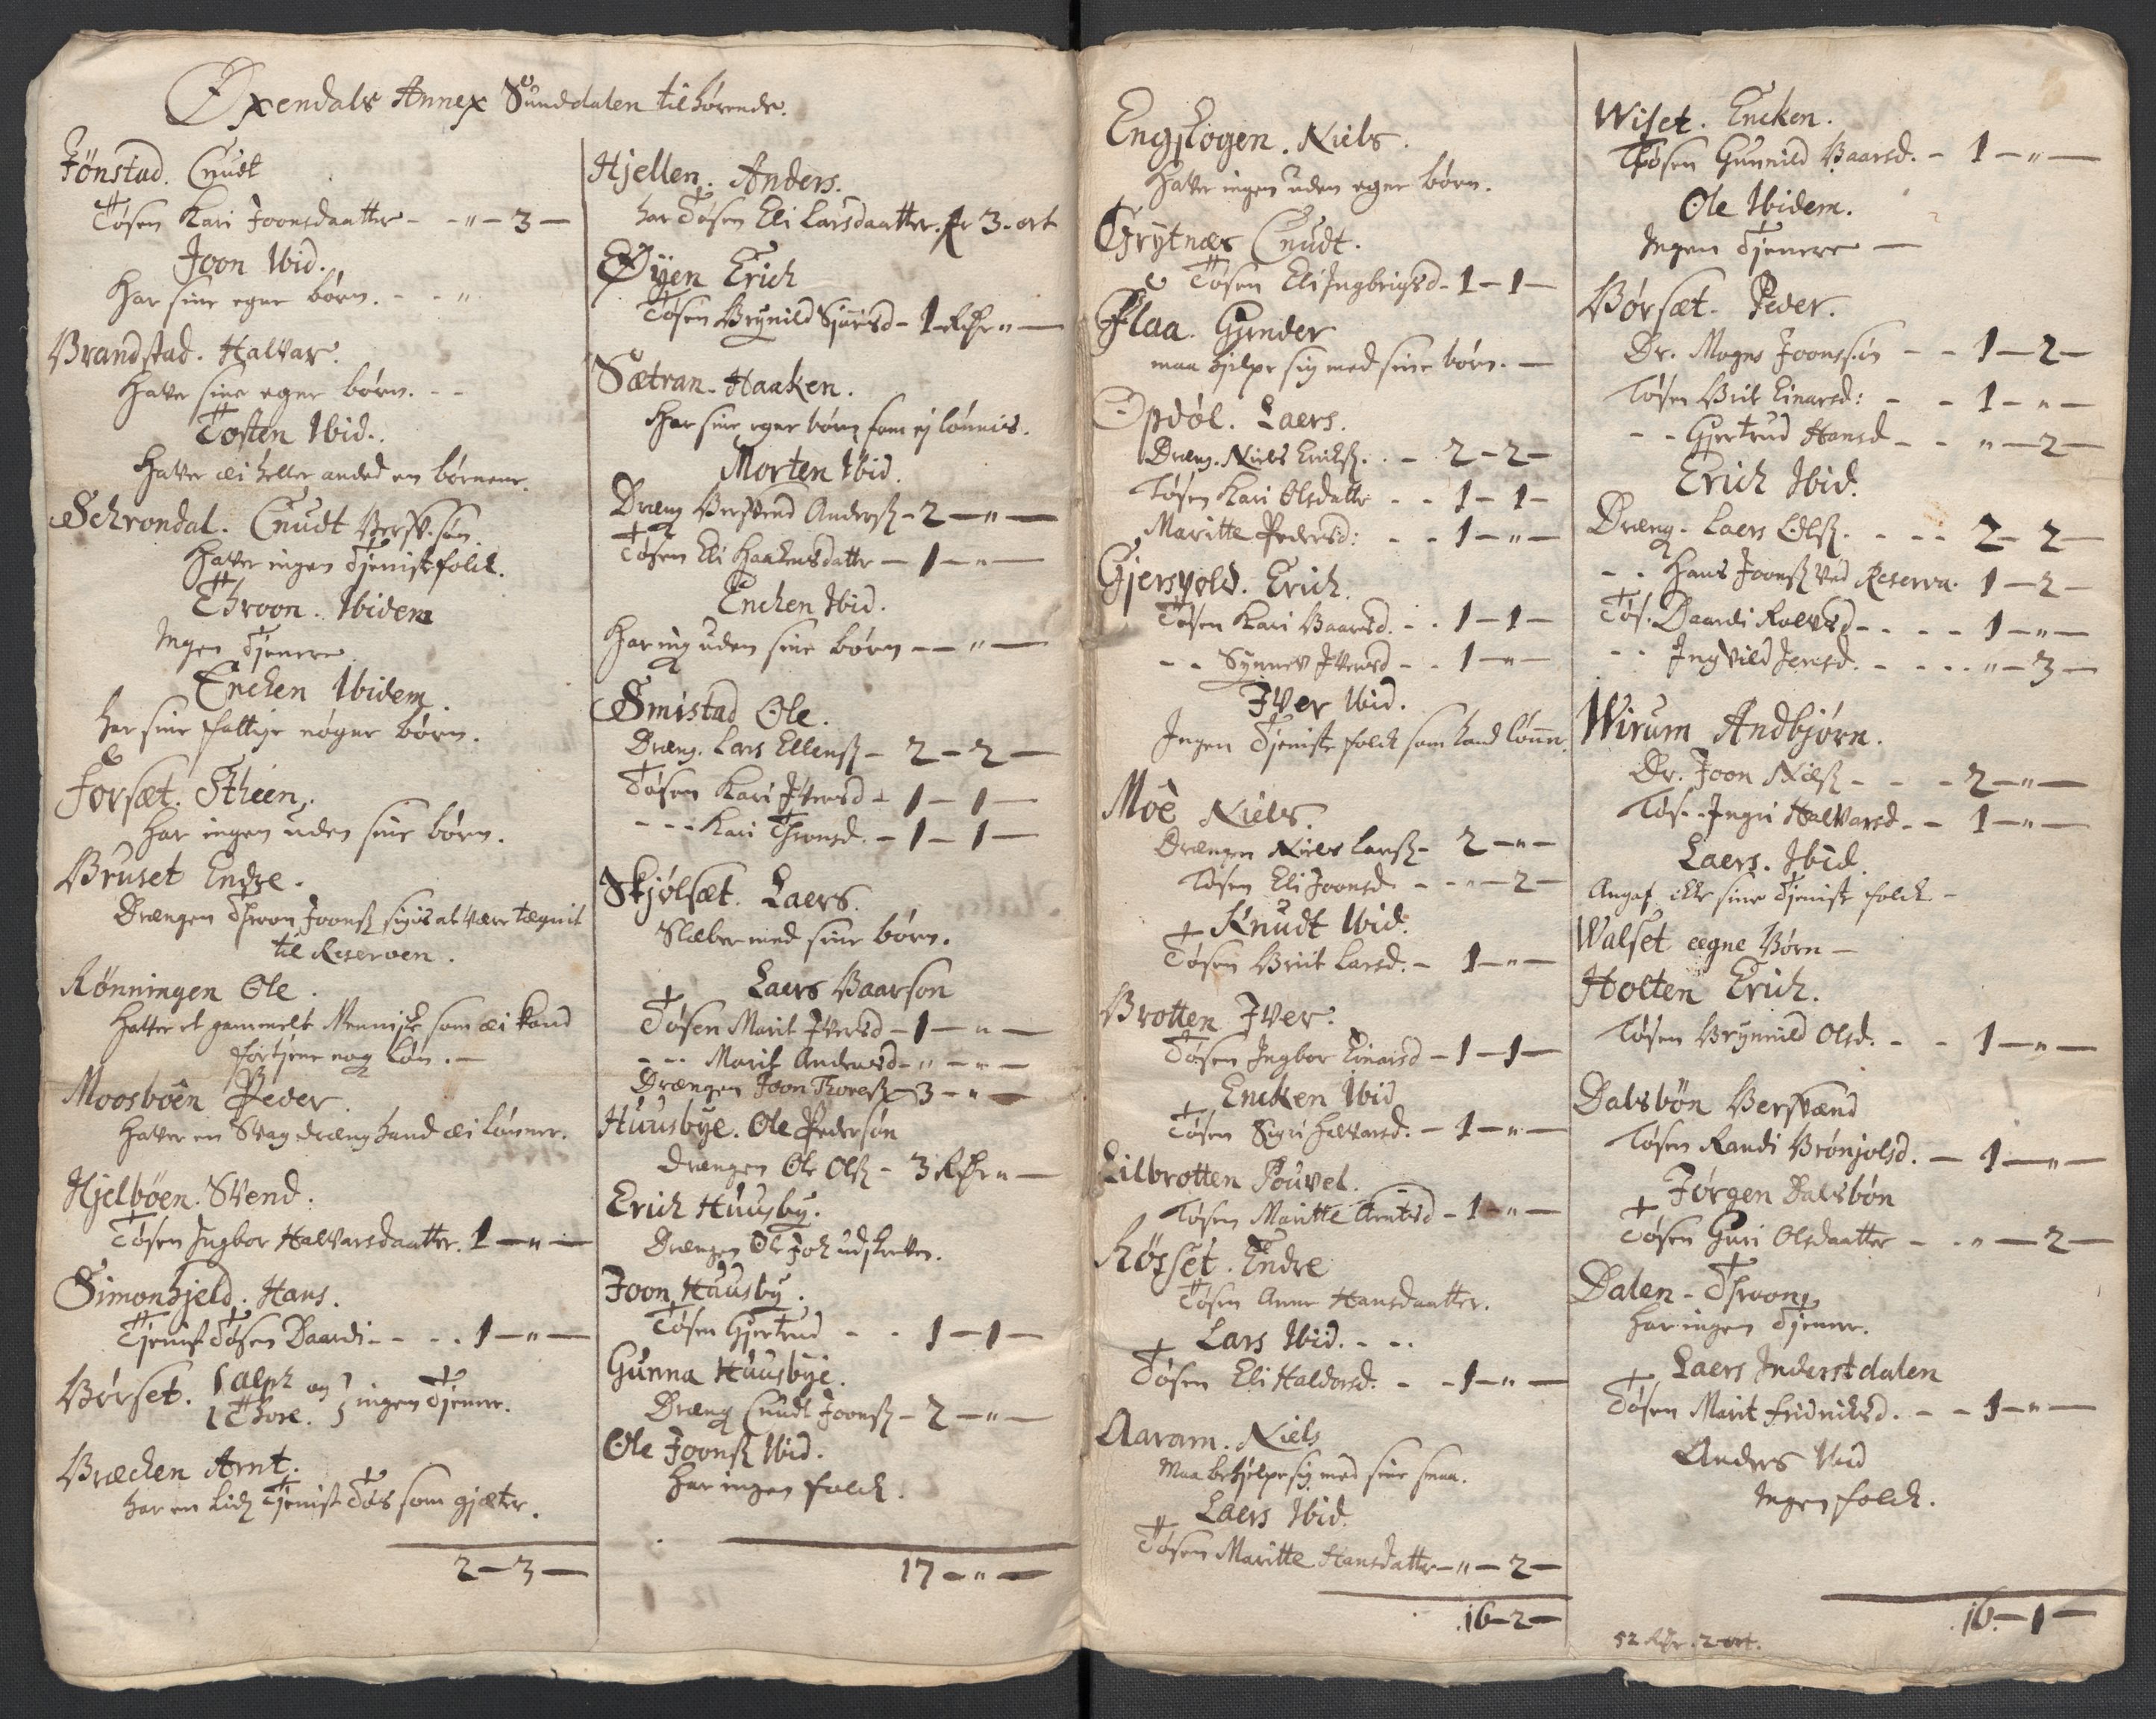 Øxendals Annex Sunddalen tilhørende.
Jønstad. Cnudt
Tøsen Kari Joonsdaatter - - " - 3 -
Joon Ibid.
Har sine egne børn. - - "
Brandstad. Halvar.
Haver sine egne børn. - -
Tosten Ibid.
Haver æi heller anded en børnene.
Schrondal. Cnudt Bersv. søn.
Haver ingen Tjenistefolck.
Throon. Ibidem
Ingen Tjenere.
Encken Ibidem.
har sine fattige nøgne børn.
Forsæt. Stheen.
Har ingen uden sine børn.
Bruset Endre.
Drængen Throon Joonsß sigis at være tægnit
til Reserven.
Rønningen Ole.
Haver et gammelt Menniske som æi kand
fortjene nog Løn. -
Moosboên Peder.
Haver en Svag dræng hand æi Lønner.
Hjelbøen. Svend.
Tøsen Ingbor Halvarsdaatter. 1 - " -
Simonhjeld. Hans.
Tjenist Tøsen Baardi - - - . 1 - " -
Børset. { Alph og
{ Thore. } ingen Tjener.
Bræcken Arnt.
har en Liden Tjeniste Tøs som gjæter.
2 - 3 -
Hjellen. Anders.
har Tøsen Eli Larsdaatter. for 3. ort
Øÿen Erich
Tøsen Brynild Sjursd - 1 Rdr " -
Sætran. Haaken.
Har sine egne børn som ej lønnis.
Morten Ibid.
Dræng Bersvend Andersß - 2 - " -
Tøsen Eli Haakensdatter - 1 - " -
Encken Ibid.
Har ing uden sine børn - - " -
Smistad Ole.
Dræng. Lars Ellensß - 2 - 2 -
Tøsen Kari Iversd - 1 - 1 -
- - - Kari Thronsd. - 1 - 1 -
Skjølsæt. Laers.
Slæber med sine børn.
Laers Baarson
Tøsen Marit Iversd - 1 - " -
- - - Marit Andersd - " - " -
Drængen Joon Thoresß - 3 - " -
Huusbye. Ole Pedersøn
Drængen Ole Olsß - 3 Rdr " -
Erich Huusby.
Drængen Ole Joh udskreven.
Joon Huusby.
Tøsen Gjertrud - - 1 - 1 -
Gunna Huusbye.
Dræng Cnudt Joonsß - 2 - " -
Ole Joonsß Ibid.
Har ingen folck.
17 - " -
Engskogen. Niels.
Haver ingen uden egne børn.
Grytnæs Cnudt.
Tøsen Eli Ingbrigsd - 1 - 1 -
Flaa. Gunder
maa hjelpe sig med sine børn. -
Opdøl. Laers.
Dræng. Niels Eriksß. . - 2 - 2 -
Tøsen Kari Olsdatter - - 1 - 1 -
Maritte Pedersd: - - 1 - " -
Gjersvold. Erich.
Tøsen Kari Baarsd. - . 1 - 1 -
- - Synnev Iversd - - 1 - " -
Iver Ibid.
Ingen Tjeniste folck som hand lønner.
Moê Niels.
Drængen Niels Larsß - 2 - " -
Tøsen Eli Joonsd. - - " - 2 -
Knudt Ibid.
Tøsen Brit Larsd. - 1 - " -
Brotten Iver.
Tøsen Ingbor Einarsd - 1 - 1 -
Encken Ibid
Tøsen Sigri Halvarsd. - 1 - " -
Lilbrotten Pouvel.
Tøsen Maritte Arntsd - 1 - " -
Røsset. Endre
Tøsen Anne Hansdaatter.
Lars Ibid. - - .
Tøsen Eli Haldorsd. - - 1 - " -
Aaram. Niels
Maa behjelpe sig med sine smaa.
Laers Ibid.
Tøsen Maritte Hansdatter - " - 2 -
16 - 2 -
Wiset. Encken.
Tøsen Gunnild Baarsd. - 1 - " -
Ole Ibidem.
Ingen Tjenere -
Børsæt. Peder.
Dr. Mogns Joonssøn - - 1 - 2 -
Tøsen Brit Einarsd: - - 1 - " -
- - Gjertrud Hansd - - " - 2 -
Erich Ibid.
Dræng. Laers Olsß. - - - 2 - 2 -
- - Hans Joonsß Ved Reserva. 1 - 2 -
Tøs. Baardi Rolvsd - - - - 1 - " -
- - Ingvild Jensd. - - - - " - 3 -
Wirum Andbjørn.
Dr. Joon Nielsß - - - 2 - " -
Tøs. - Ingri Halvarsd - - 1 - " -
Laers. Ibid.
Angaf icke sine Tjeniste folck -
Walset eegne Børn -
Holten Erich.
Tøsen Brynnild Olsd. - - 1 - " -
Dalsbøn Bersvænd
Tøsen Randi Brønjolsd. - 1 - " -
Jørgen Dalsbøn
Tøsen Guri Olsdaatter - - " - 2 -
Dalen - Throon
Har ingen Tjener.
Laers Inderstdalen
Tøsen Marit Fridriksd. - - 1 - " -
Anders Ibid
Ingen folck.
16 - 1 -
52 Rdr. 2 ort.